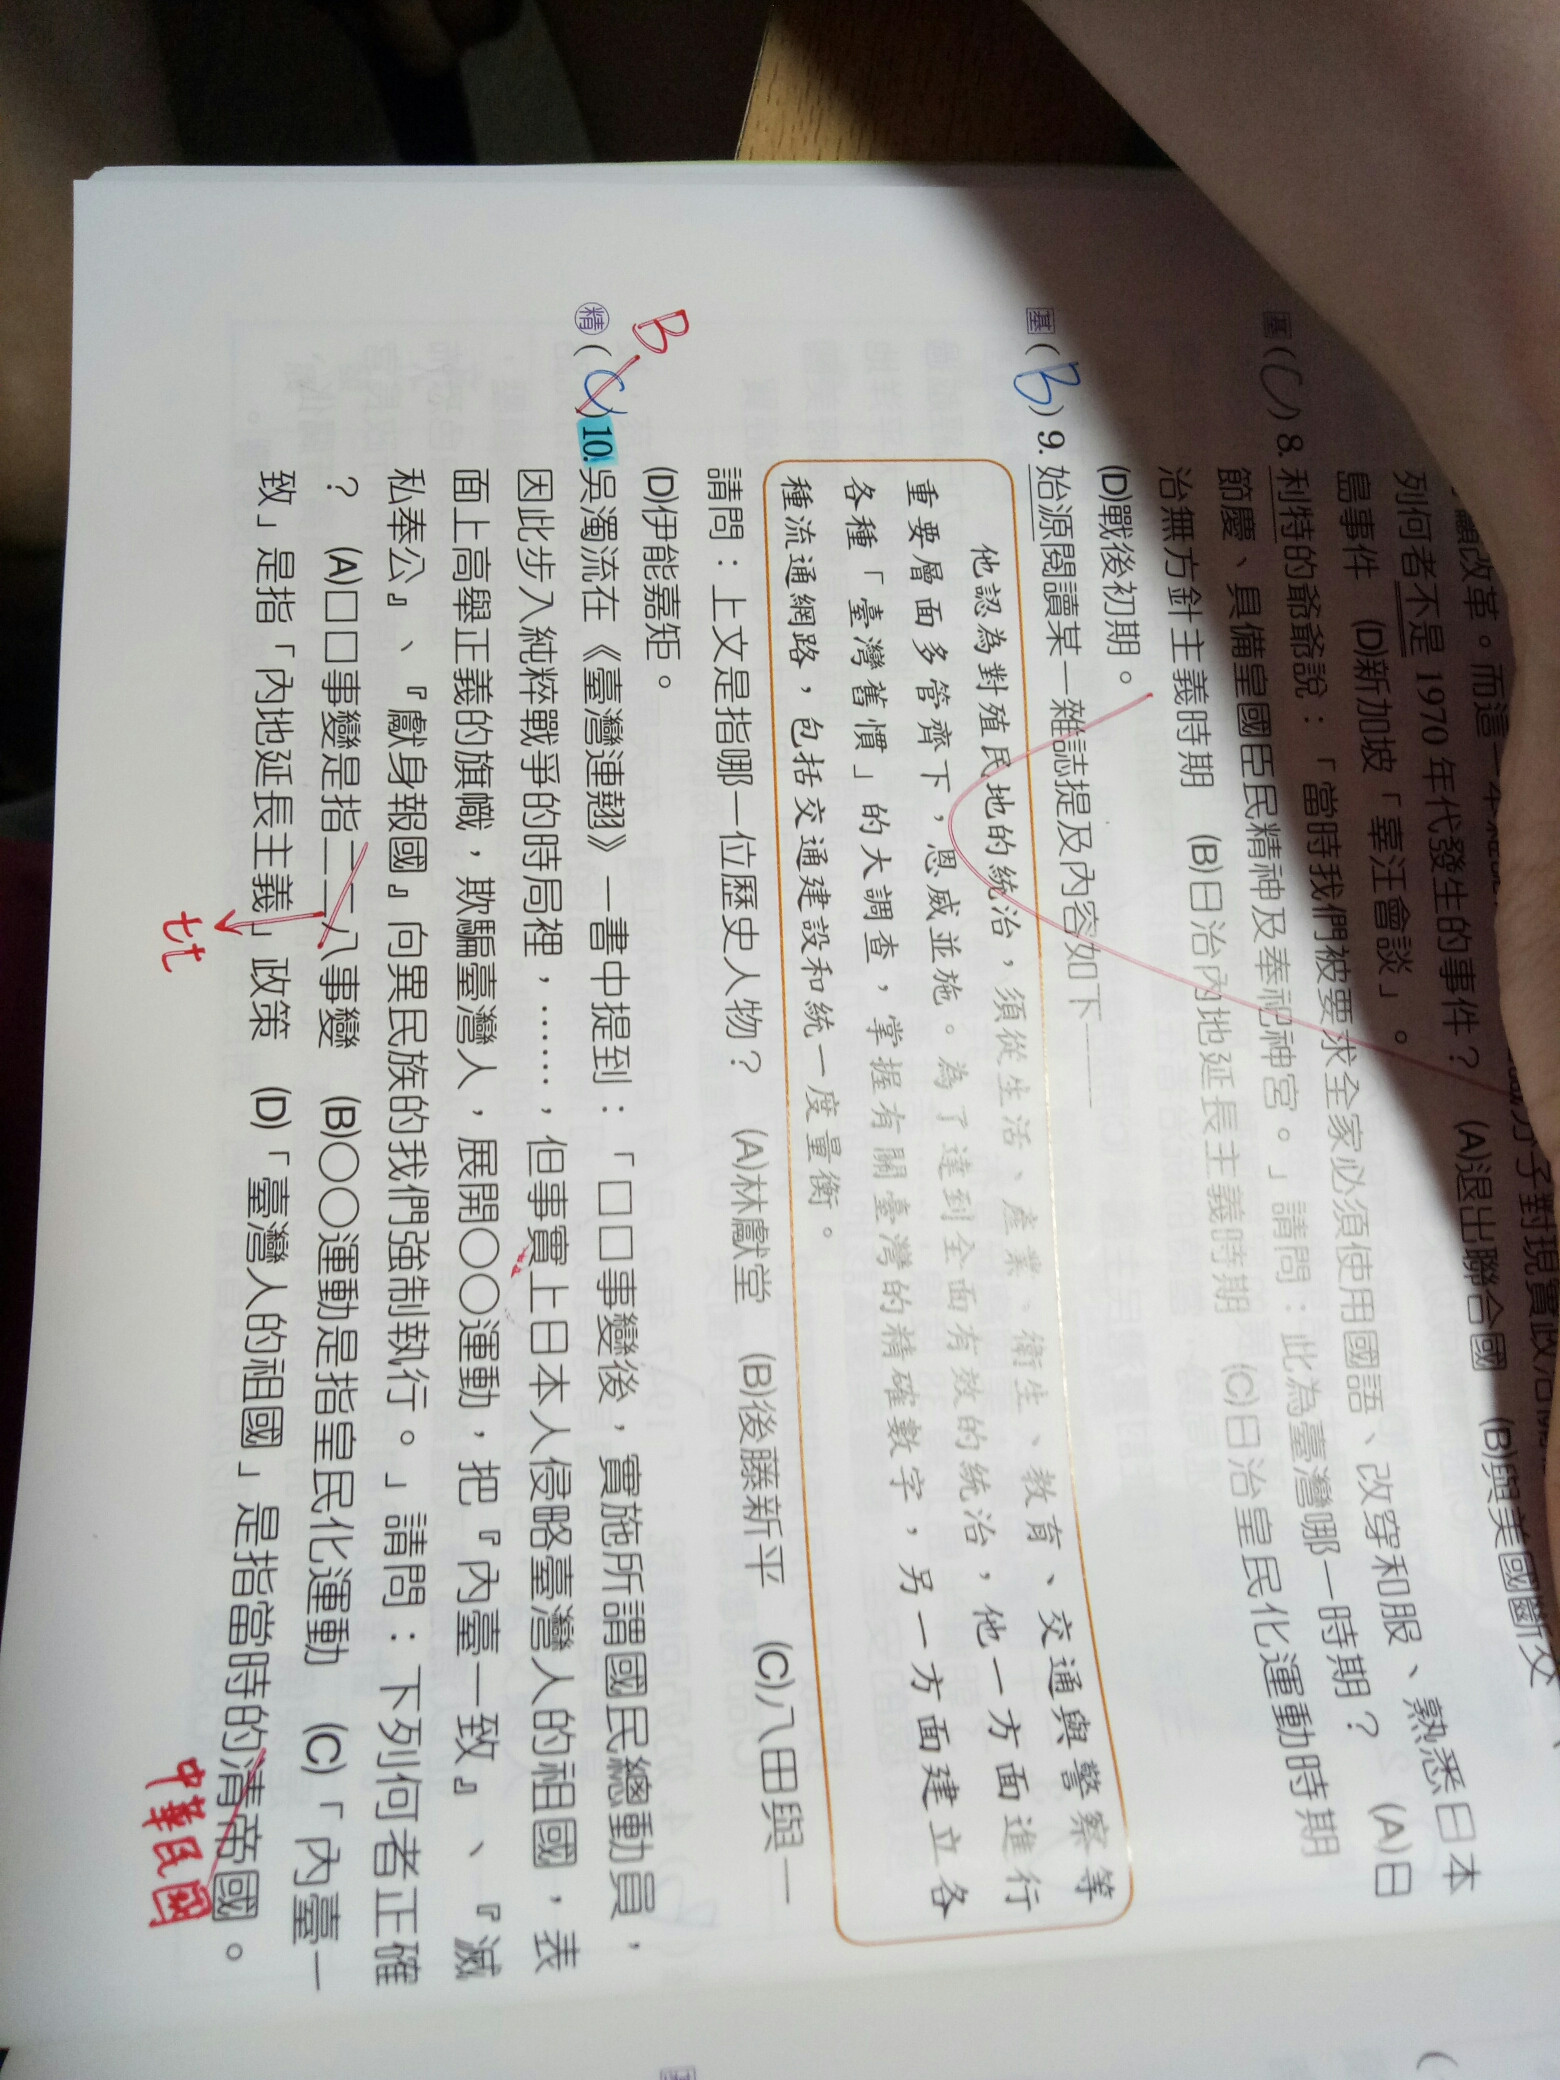 列何者不是 1970 年代發生的事件? (A)退出聯合國 (B)與美國斷交
島事件 (D)新加坡「辜汪會談」。
基(C)8.利特的爺爺說:「當時我們被要求全家必須使用國語、改穿和服、熟悉日本
節慶、具備皇國臣民精神及奉祀神宮。」請問:此為臺灣哪一時期? (A)日
治無方針主義時期 (B)日治內地延長主義時期 (C)日治皇民化運動時期
(D)戰後初期。
基(B)9.始源閱讀某一雜誌提及內容如下——
他認為對殖民地的統治,須從生活、產業、衛生、教育、交通與警察等
重要層面多管齊下,恩威並施。為了達到全面有效的統治,他一方面進行
各種「臺灣舊慣」的大調查,掌握有關臺灣的精確數字,另一方面建立各
種流通網路,包括交通建設和統一度量衡。
請問:上文是指哪一位歷史人物? (A)林獻堂 (B)後藤新平 (C)八田與一
(D)伊能嘉矩。
B
精(C)10.吳濁流在《臺灣連翹》一書中提到:「□□事變後,實施所謂國民總動員,
因此步入純粹戰爭的時局裡,……,但事實上日本人侵略臺灣人的祖國,表
面上高舉正義的旗幟,欺騙臺灣人,展開○○運動,把『內臺一致』、『滅
私奉公』、『獻身報國』向異民族的我們強制執行。」請問:下列何者正確
? (A)□□事變是指一二八事變 (B)○○運動是指皇民化運動 (C)「內臺一
致」是指「內地延長主義」政策 (D)「臺灣人的祖國」是指當時的清帝國。
七七
中華民國